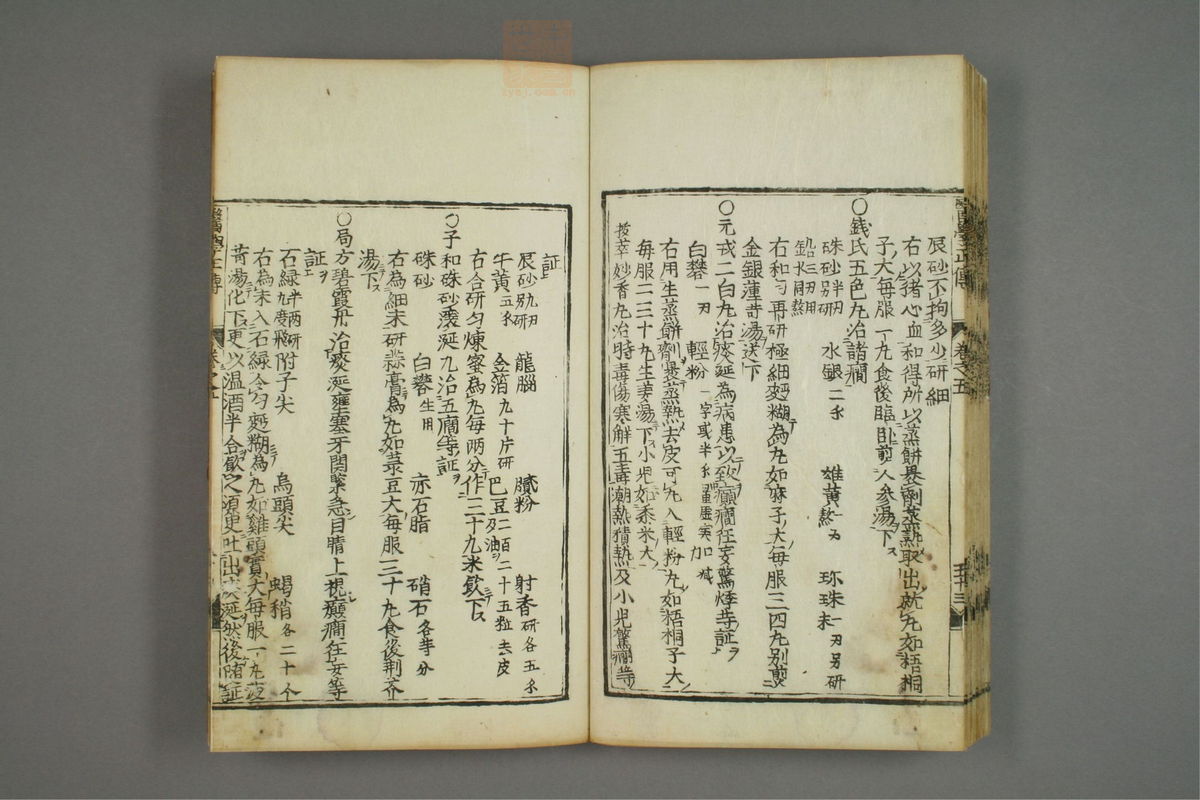 辰砂不拘多少研細
右以猪心血和得所以蒸餅裹劑蒸熟取出就丸如梧桐
子大每服一丸食後臨卧煎人參湯下
○錢氏五色丸治諸癎
硃砂半刃另研 水銀二分 雄黄一刃熬 珎珠末一刃另研
鈆三刃用水同熬
右和勻再研極細麪糊為丸如麻子大每服三四丸別煎
金銀蓮苛湯送下
○元戎二白丸治痰涎為病患以致癲癎狂妄驚悸等証
白礬一刃 輕粉一字或半分量虛実加减
右用生蒸餅劑裹蒸熟去皮可丸入輕粉丸如梧桐子大
每服二三十丸生姜湯下小児如黍米大
按萃妙香丸治時毒傷寒解五毒潮熱積熱及小児驚癎等
証
辰砂九刃另研 龍腦 膩粉 射香研各五分
牛黄五分 金箔九十片研 巴豆二百二十五粒去皮及油
右合研勻煉蜜為丸每兩分作三十丸米飲下
○子和硃砂滚涎丸治五癎等証
硃砂 白礬生用 赤石脂 硝石各等分
右為細末研蒜膏為丸如菉豆大每服三十丸食後荆芥
湯下
○局方碧霞丹治痰涎壅塞牙関緊急目睛上視癲癎狂妄等
証
石緑半兩研九度飛 附子尖 烏頭尖 蝎稍各二十个
右為末入石緑令勻麪糊為丸如雞頭實大每服一丸波
苛湯化下更以温酒半合飲之須臾吐出痰涎然後隨証
醫學正傳 卷之五